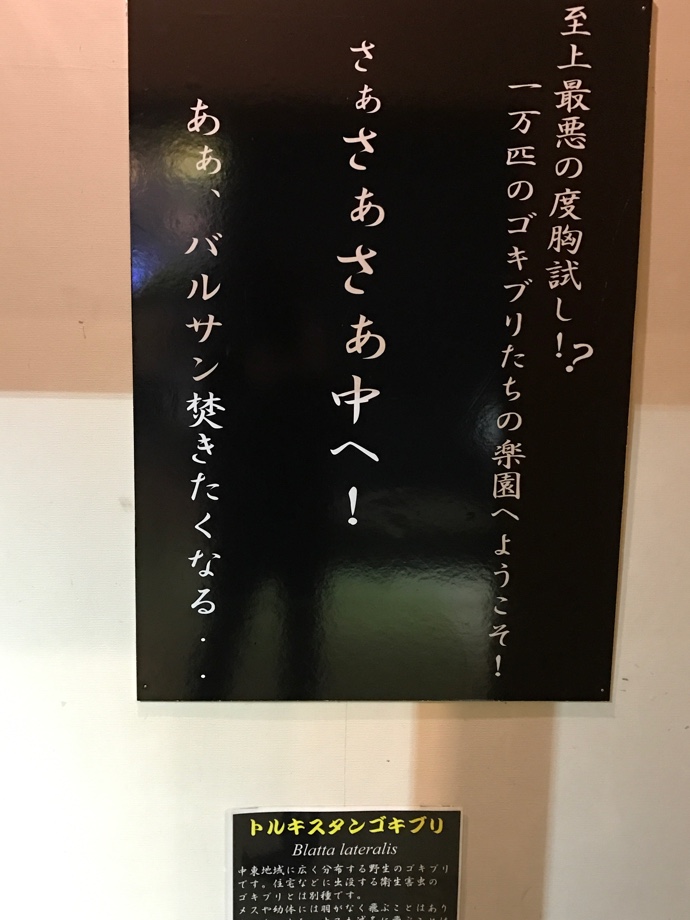 至上最悪の度胸試し!?
一万匹のゴキブリたちの楽園へようこそ!
さぁさぁさぁ中へ!
あぁ、バルサン焚きたくなる・・
トルキスタンゴキブリ
Blatta lateralis
中東地域に広く分布する野生のゴキブリ
です。住宅などに出没する衛生害虫の
ゴキブリとは別種です。
メスや幼体には羽がなく飛ぶことはあり